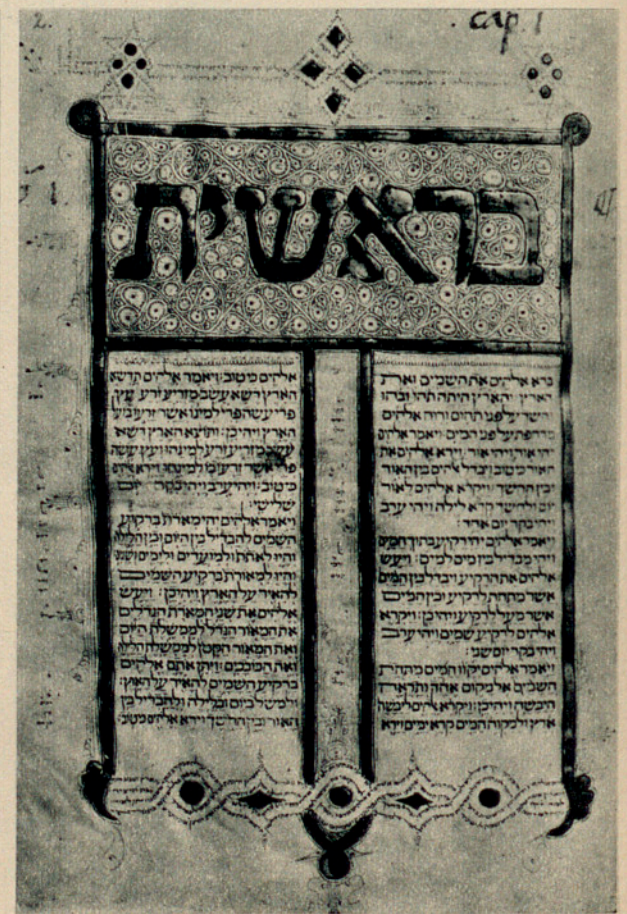 2.
cap. 1
בראשית
ברא אלהים את השמים ואת
הארץ והארץ היתה תהו ובהו
וחשך על פני תהום ורוח אלהים
מרחפת על פני המים ויאמר אלהים
יהי אור ויהי אור וירא אלהים את
האור כי טוב ויבדל אלהים בין האור
ובין החשך ויקרא אלהים לאור
יום ולחשך קרא לילה ויהי ערב
ויהי בקר יום אחד:
ויאמר אלהים יהי רקיע בתוך המים
ויהי מבדיל בין מים למים: ויעש
אלהים את הרקיע ויבדל בין המים
אשר מתחת לרקיע ובין המים
אשר מעל לרקיע ויהי כן: ויקרא
אלהים לרקיע שמים ויהי ערב
ויהי בקר יום שני:
ויאמר אלהים יקוו המים מתחת
השמים אל מקום אחד ותראה
היבשה ויהי כן: ויקרא אלהים ליבשה
ארץ ולמקוה המים קרא ימים וירא
אלהים כי טוב: ויאמר אלהים תדשא
הארץ דשא עשב מזריע זרע עץ
פרי עשה פרי למינו אשר זרעו בו על
הארץ ויהי כן: ותוצא הארץ דשא
עשב מזריע זרע למינהו ועץ עשה
פרי אשר זרעו בו למינהו וירא אלהים
כי טוב: ויהי ערב ויהי בקר יום
שלישי:
ויאמר אלהים יהי מארת ברקיע
השמים להבדיל בין היום ובין הלילה
והיו לאתת ולמועדים ולימים ושנים
והיו למאורת ברקיע השמים
להאיר על הארץ ויהי כן: ויעש
אלהים את שני המארת הגדלים
את המאור הגדל לממשלת היום
ואת המאור הקטן לממשלת הלילה
ואת הכוכבים: ויתן אתם אלהים
ברקיע השמים להאיר על הארץ:
ולמשל ביום ובלילה ולהבדיל בין
האור ובין החשך וירא אלהים כי טוב: